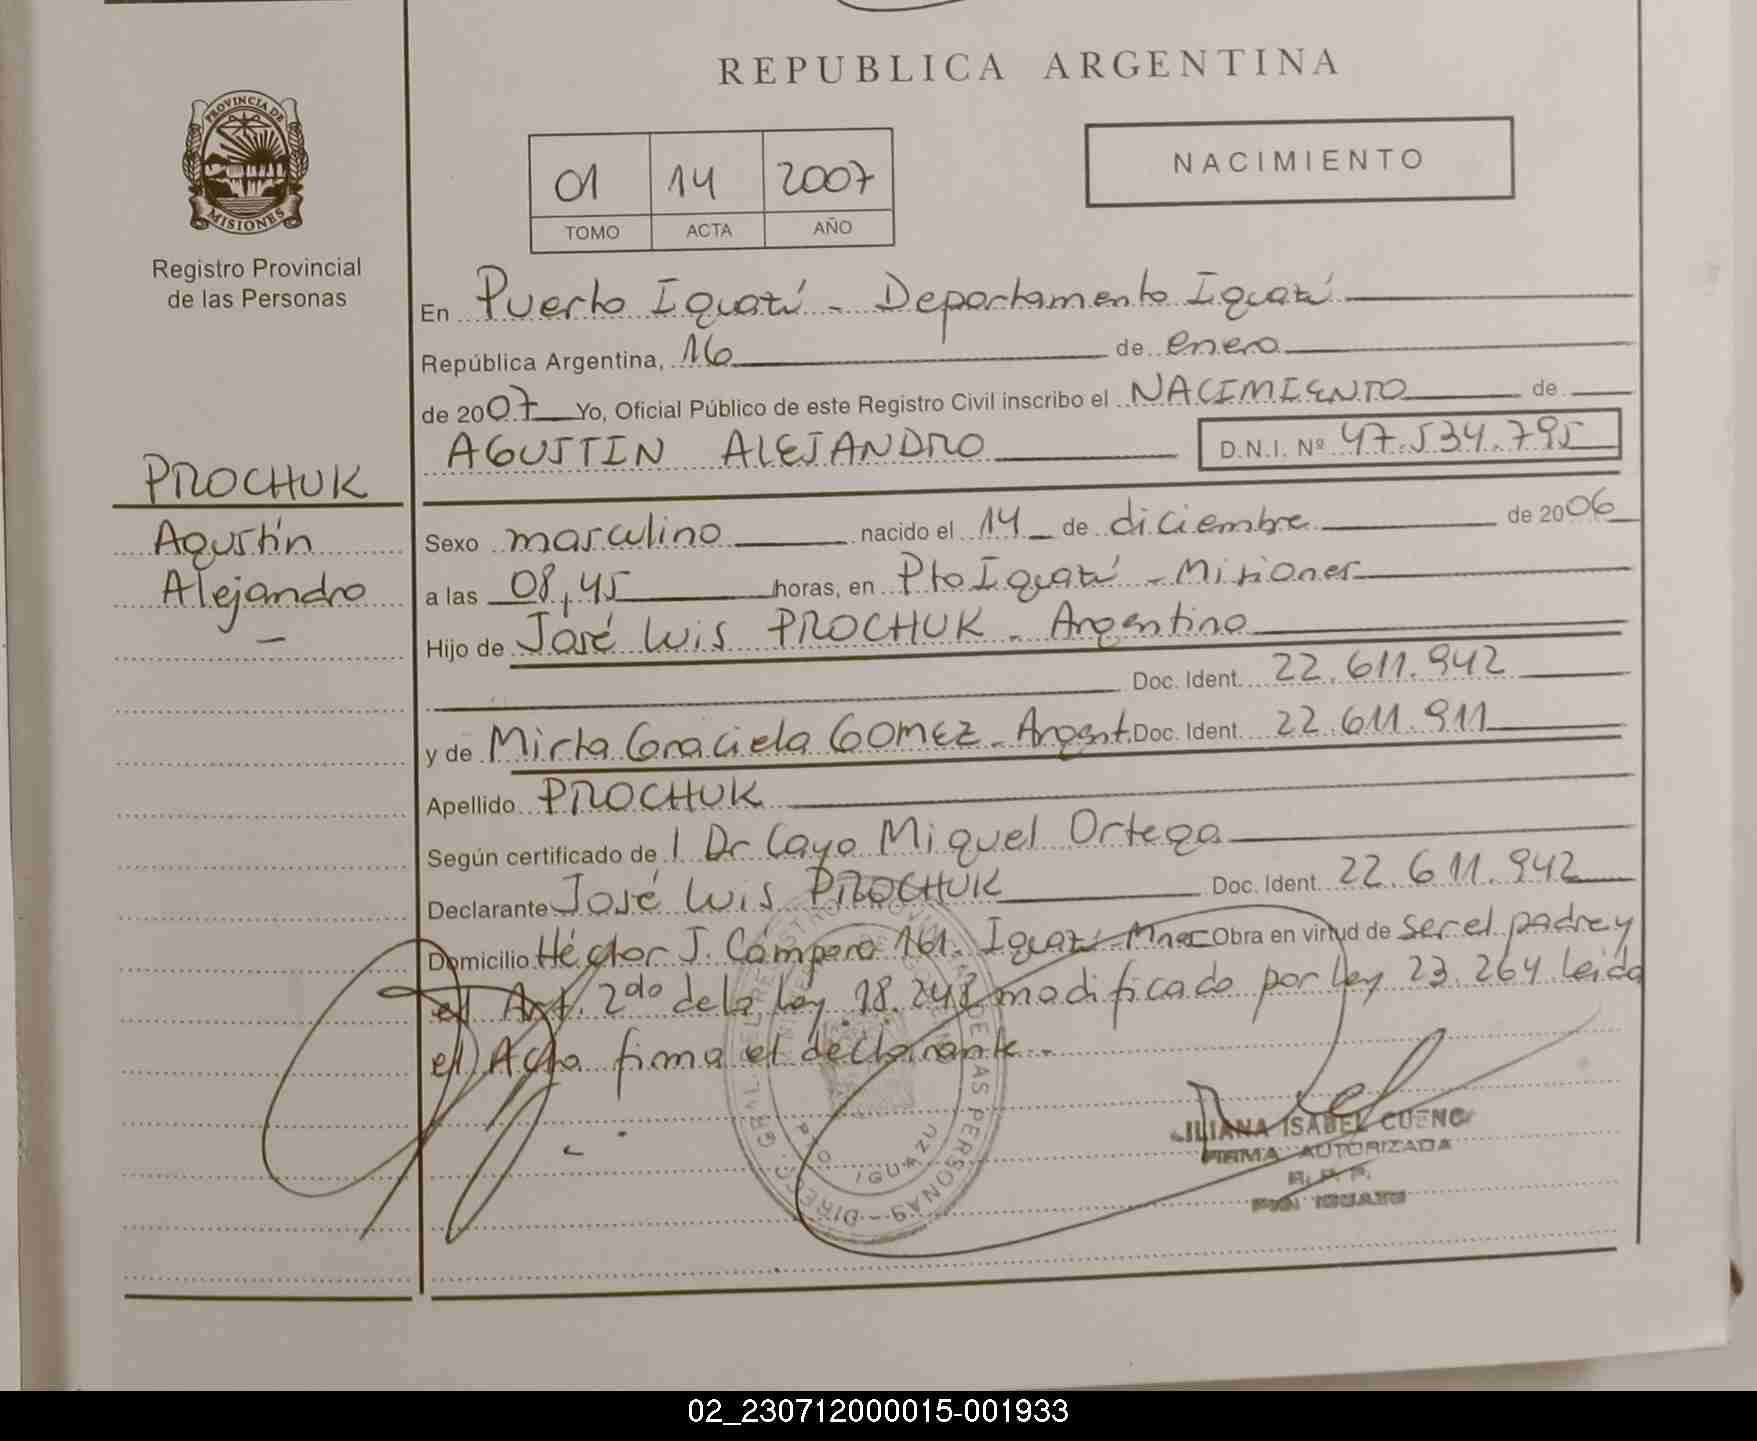 REPUBLICA ARGENTINA
PROVINCIA DE
MISIONES
Registro Provincial
de las Personas
01 14 2007
TOMO ACTA AÑO
NACIMIENTO
En Puerto Iguazú - Departamento Iguazú
República Argentina, 16 de enero
de 2007 Yo, Oficial Público de este Registro Civil inscribo el NACIMIENTO de
AGUSTIN ALEJANDRO D.N.I. Nº 47.534.795
PROCHUK
Agustín
Alejandro
Sexo masculino nacido el 14 de diciembre de 2006
a las 08,45 horas, en Pto Iguazú - Misiones
Hijo de José Luis PROCHUK - Argentino
Doc. Ident. 22.611.942
y de Mirta Graciela GOMEZ - Argent. Doc. Ident. 22.611.911
Apellido PROCHUK
Según certificado de l Dr Cayo Miguel Ortega
Declarante José Luis PROCHUK Doc. Ident. 22.611.942
Domicilio Héctor J. Cámpora 161. Iguazú Obra en virtud de ser el padre y
el Art. 2do de la Ley 18.248 modificado por Ley 23.264 leida
el Acta firma el declarante -
PTO IGUAZU
LILIANA ISABEL CUENC
FIRMA AUTORIZADA
R. P. P.
IGUAZU
02_230712000015-001933